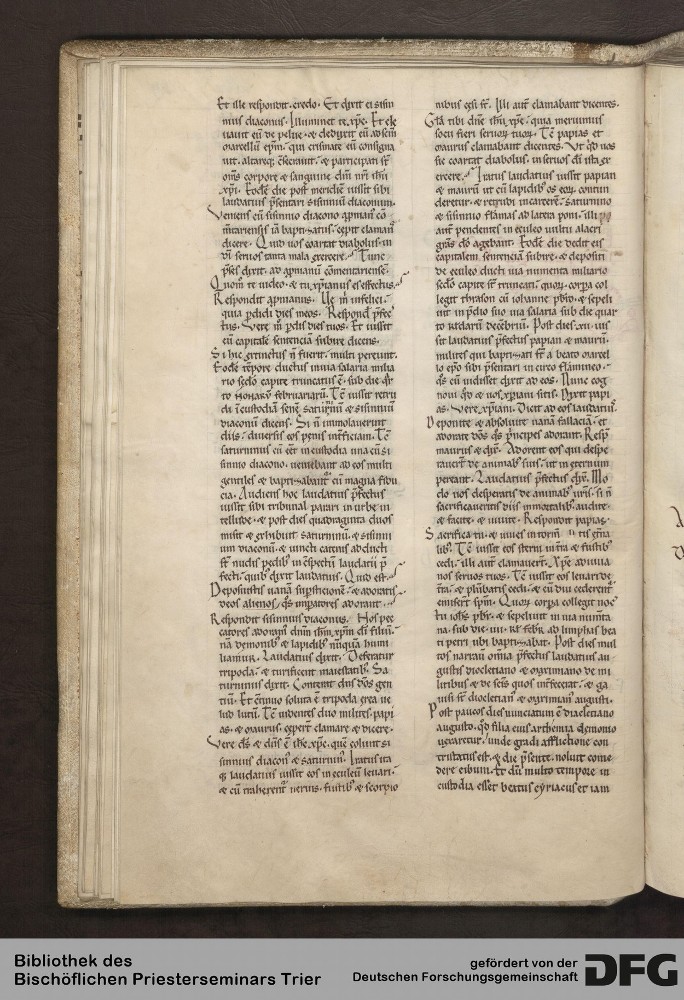 Et ille respondit. credo. Et dixit ei sisin
nius diaconus. Illuminet te. xp̄c. Et ele
uauit eū de pelue. & deduxit eū ad sc̄m
marcellū ep̄m. qui crismate eū consigna
uit. altareq; c̄secrauit. & participati s̄t
om̄s corpore & sanguine dn̄i nr̄i ih̄u
xp̄i. Eodē die post meridiē iussit sibi
laudatius p̄sentari sisinniū diaconum.
Veniens cū sisinnio diacono apmanus cōm̄tariensis iā baptizatus. cepit clamare
dicere. Quid uos coartat diabolus. in
dei seruos tanta mala exercere. Tunc
p̄fes dixit. ad apmanū cōmentariensē.
Quom̄ te uideo. & tu xp̄ianus es effectus.
Respondit apmanus. Ve m̄ infelici.
quia p̄didi dies meos. Respond̄ p̄fec
tus. Vere m̄ p̄dis dies tuos. Et iussit
eū capitalē sentenciā subire dicens.
Si hic extinctus n̄ fuerit. multi pereunt.
Eodē tēpore ductus in uia salaria milia
rio sc̄do capite truncatus ē. sub die q̄r
to nonarū februariarū. Tē iussit retru
di ī custodiā senē saturninū & sisinniū
diaconū dicens. Si n̄ immolauerint
diis. diuersis eos penis int̄ficiam. Tē
saturninus cū eēt in custodia una cū si
sinnio diacono. ueniebant ad eos multi
gentiles & baptizabant̄ cū magna fidu
cia. Audiens hoc laudatius p̄fectus
iussit sibi tribunal parari in urbe in
tellude. & post dies quadraginta duos
misit & exhibuit saturninū & sisinni
um diaconū. & uincti catenis adducti
s̄t nudis pedib; in c̄spectū laudatii p̄
fecti. quib; dixit laudatus. Quid est.
Deposuistis uanā sup̄sticionē. & adoratis
deos alienos. q̄s imp̄atores adorant.
Respondit sisinnius diaconus. Nos pec
catores adoram̄ dn̄m ih̄m xp̄m dī filiū.
nā demonib; & lapidib; nūquā humi
liamur. Laudatius dixit. Deferatur
tripoda. & turificent maiestatib;. Sa
turninus dixit. Conterat dn̄s deos gen
tiū. Et c̄tinuo soluta ē tripoda erea ue
lud lutū. Tē uidentes duo milites. papi
as. & maurus. ceper̄t clamare & dicere.
Vere ds̄ & dn̄s ē ih̄c xp̄c. quē colunt si
sinnius diacon; & saturnin;. Iratus ita
q; laudatius iussit eos in eculeū leuari.
& cū traherent̄ neruis. fustib; & scorpio
nibus cesi s̄t. Illi aut̄ clamabant dicentes.
Gr̄a tibi dn̄e ih̄u xp̄e. quia meruimus
socii fieri seruor; tuor;. Tē papias et
maurus clamabant dicentes. Vt q̄d uos
sic coartat diabolus. in seruos dī ista ex
ercere. Iratus laudatius iussit papian
& maurū ut cū lapidib; os eor; contun
deretur. & retrudi in carcerē. Saturnino
& sisinnio flāmas ad latera poni. illi
aut̄ pendentes in eculeo uultu alacri
gr̄as dō agebant. Eodē die dedit eis
capitalem sentenciā subire. & depositi
de eculeo ducti uia numenta miliario
sc̄do capite s̄t truncati. quor; corp̄a col
legit thrason cū iohanne pb̄ro. & sepeli
uit in p̄dio suo uia salaria sub die quar
to kl̄darū decēbriū. Post dies .xii. iu
sit laudatius p̄fectus papian & maurū.
milites qui baptizati s̄t a beato marcel
lo ep̄o sibi p̄sentari in circo flāmineo.
q̄s cū uidisset dixit ad eos. Nunc cog
noui q̄d & uos xp̄iani sitis. Dixit papi
as. Vere xp̄iani. Dicit ad eos laudatius.
Deponite & absoluite uanā fallaciā. et
adorate deos q̄s p̄ncipes adorant. Resp̄
maurus & dix̄. Adorent eos qui despe
rauerit de animab; suis. ut in eternum
pereant. Laudatius p̄fectus dix̄. Mo
do uos desperatis de animab; ur̄is. si n̄
sacrificaueritis diis immortalib;. audite.
& facite. & uiuite. Respondit papias.
Sacrifica tu. & uiues in torm tis et̄na
lib;. Tē iussit eos sterni in tr̄a & fustib;
cedi. illi aut̄ clamauert̄. Xp̄e adiuua
nos seruos tuos. Tē iussit eos leuari de
tr̄a. & plūbatis cedi. & cū diu cederent̄
emisert̄ sp̄m. Quor; corp̄a collegit noc
tu ioh̄s pb̄r. & sepeliuit in uia numta
na. sub die .iiii. kl̄ feb̄r. ad limphas bea
ti petri ubi baptizabat. Post dies mul
tos narrauit om̄ia p̄fectus laudatius au
gustis diocletiano & maximiano de mi
litibus & de sc̄is quos int̄fecerat. & ga
uisi s̄t diocletian; & maximian; augusti.
Post paucos dies nunciatum ē diocletiano
augusto. q̄d filia eius arthemia demonio
uexaretur. unde gradi afflictione con
tristatus est. & die p̄sente. noluit come
dere cibum. Et dū multo tempore in
custodia esset beatus cyriacus et iam
Bibliothek des
Bischöflichen Priesterseminars Trier
gefördert von der
Deutschen Forschungsgemeinschaft
DFG